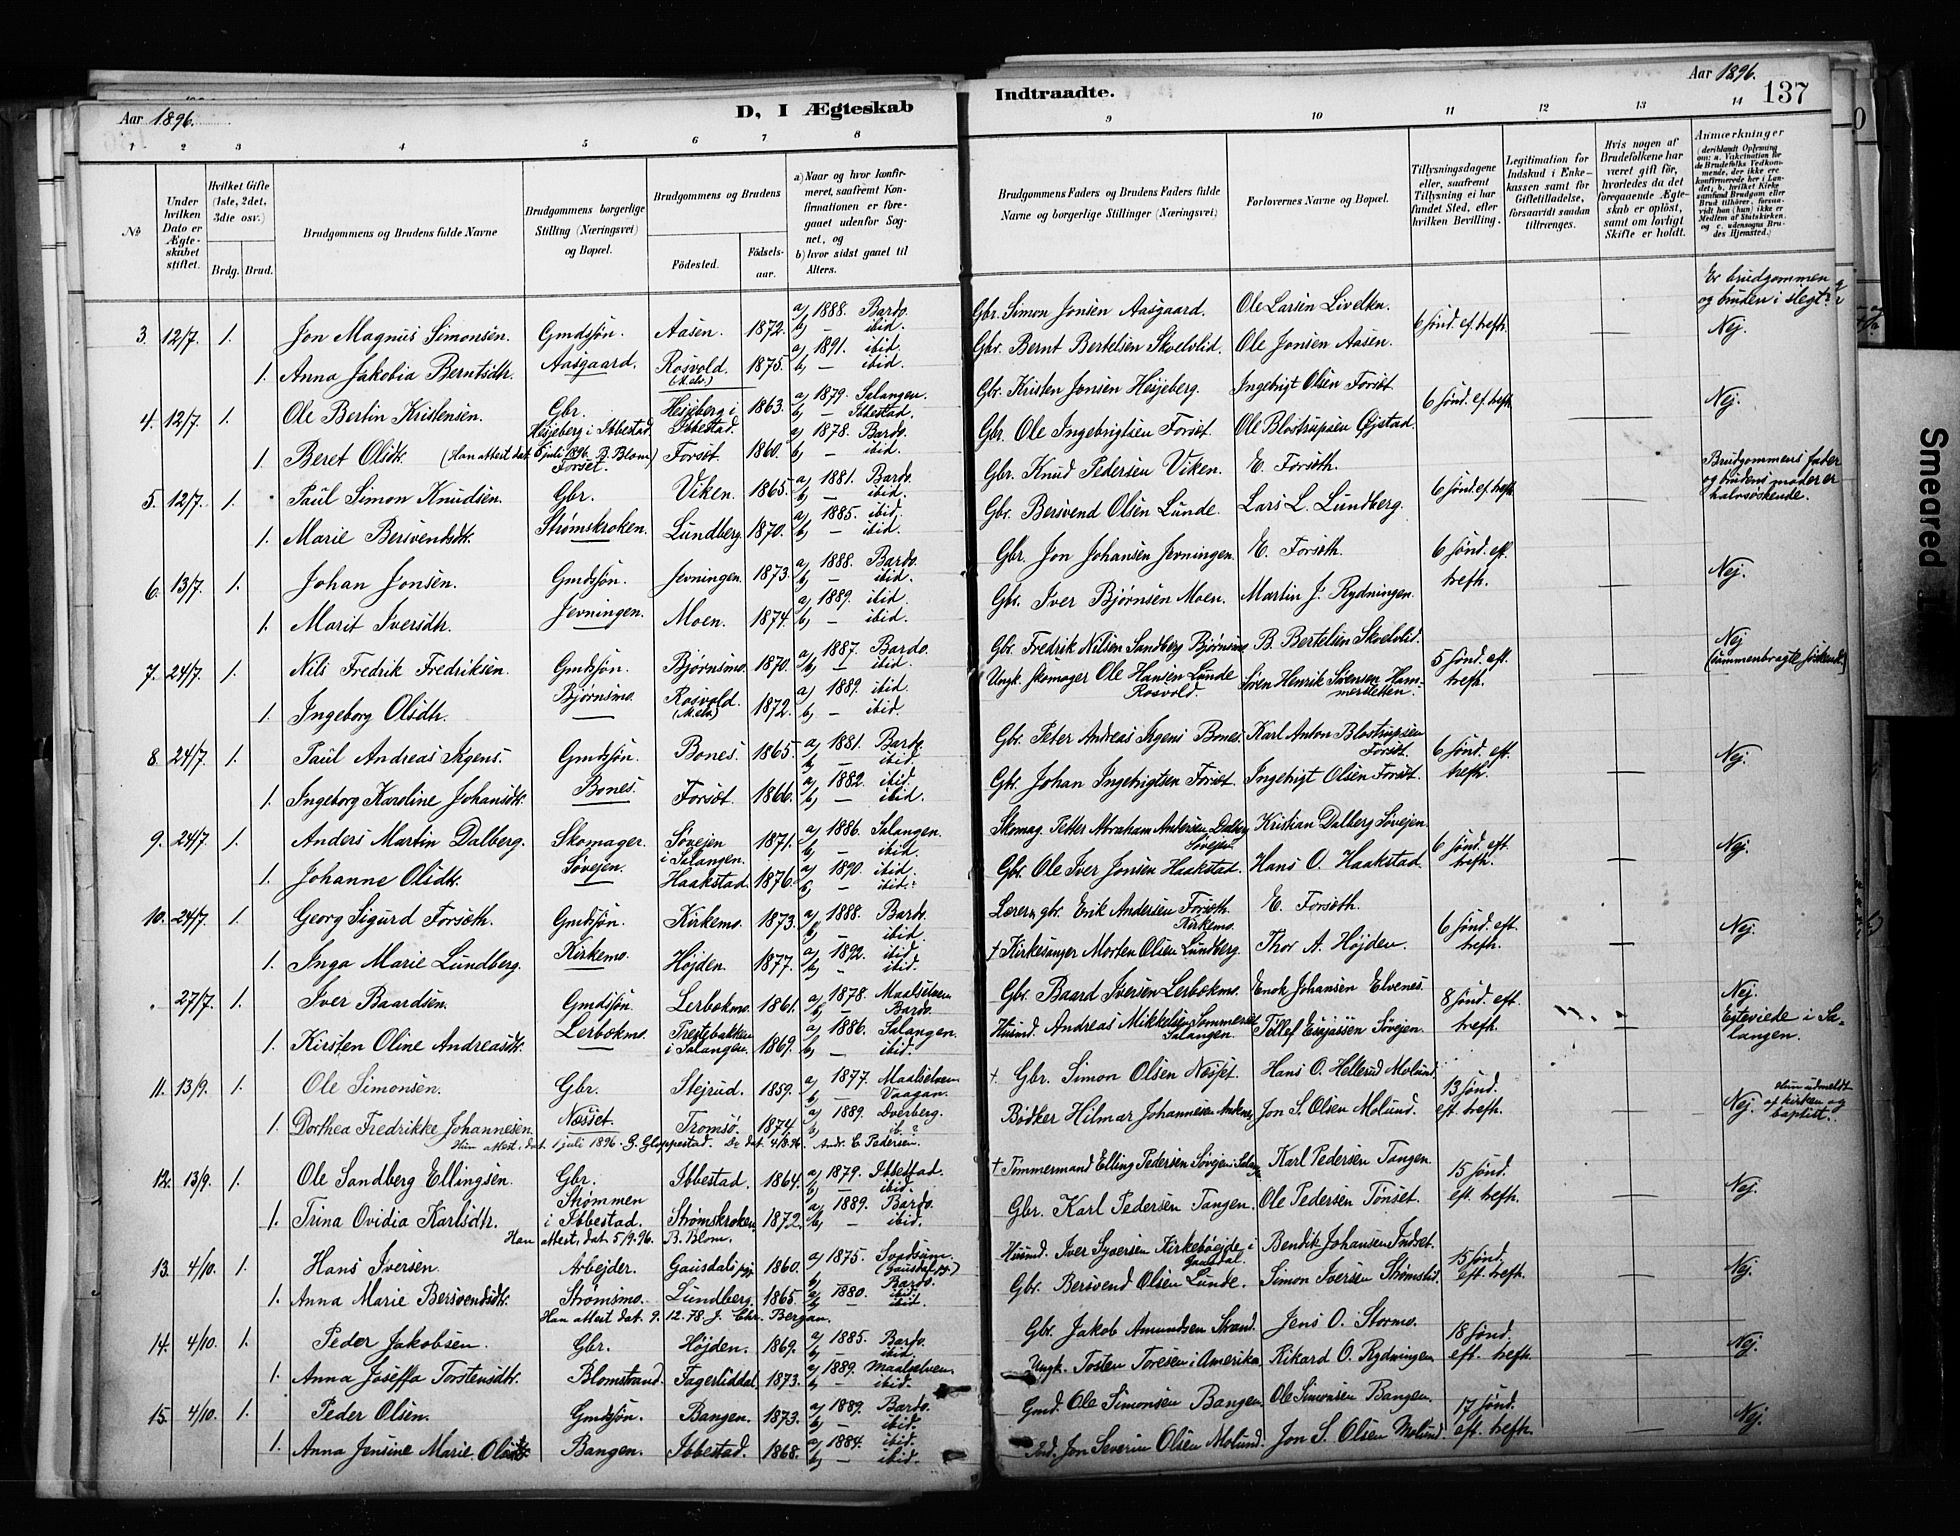 Aar 1896.
D, I Ægteskab
Indtraadte.
Aar 1896.
137
1 2 3 4 5 6 7 8
9 10 11 12 13 14
No
Under hvilken Dato er Ægteskabet stiftet.
Hvilket Gifte (1ste, 2det, 3die osv.)
Brdg. Brud.
Brudgommens og Brudens fulde Navne
Brudgommens borgerlige Stilling (Næringsvei) og Bopæl.
Brudgommens og Brudens
Födested.
Födselsaar.
a) Naar og hvor konfirmeret, saafremt Konfirmationen er foregaaet udenfor Sognet, og
b) hvor sidst gaaet til Alters.
Brudgommens Faders og Brudens Faders fulde Navne og borgerlige Stillinger (Næringsvei)
Forlovernes Navne og Bopæl.
Tillysningsdagene eller, saafremt Tillysning ei har fundet Sted, efter hvilken Bevilling.
Legitimation for Indskud i Enkekassen samt for Giftetilladelse, forsaavidt saadan tiltrænges.
Hvis nogen af Brudefolkene har været gift för, hvorledes da det foregaaende Ægteskab er oplöst, samt om lovligt Skifte er holdt.
Anmærkninger
3. 12/7. 1. Jon Magnus Simonsen. Gmdsjøn. Aasen. 1872. a) 1888. Bardo. b) — ibid. Gbr. Simon Jonsen Aasgaard. Ole Larsen Livelten. 6 sønd. ef. trefh. — Er brudgommen og bruden i slegt? Nej.
1. Anna Jakobia Berntsdtr. Aasgaard. Rosvold. (M.elv.) 1875. a) 1891. ibid. b) — ibid. Gbr. Bernt Bertelsen Skvelvlid. Ole Jonsen Aasen.
4. 12/7. 1. Ole Bertin Kristensen. Gbr. Hesjeberg i Ibbestad. Hesjeberg i Ibbestad. 1863. a) 1879. Salangen. b) — Ibbestad. Gbr. Kristen Jonsen Hesjeberg. Ingebrigt Olsen Forsøt. 6 sønd. ef. trefh. — Nej.
1. Beret Olsdtr. (Han attest dat. 5 juli 1896. B. Blom) Forset. Forsøt. 1860. a) 1878. Bardo. b) — ibid. Gbr. Ole Ingebrigtsen Forset. Ole Blostrupsen Øjstad.
5. 12/7. 1. Paul Simon Knudsen. Gbr. Viken. 1865. a) 1881. Bardo. b) — ibid. Gbr. Knud Pedersen Viken. E. Forsøth. 6 sønd. ef. trefh. — Brudgommens fader og brudens moder er halvsøskende.
1. Marie Bersvendsdtr. Strømskroken. Lundberg. 1870. a) 1885. ibid. b) — ibid. Gbr. Bersvend Olsen Lunde. Lars L. Lundberg.
6. 13/7. 1. Johan Jonsen. Gmdsjøn. Jevningen. 1873. a) 1888. Bardo. b) — ibid. Gbr. Jon Johansen Jevningen. E. Forsøth. 6 sønd. ef. trefh. — Nej.
1. Marit Iversdtr. Jevningen. Moen. 1874. a) 1889. ibid. b) — ibid. Gbr. Iver Bjørnsen Moen. Martin J. Rydningen.
7. 24/7. 1. Nils Fredrik Fredriksen. Gmdsjøn. Bjørnsmo. 1870. a) 1887. Bardo. b) — ibid. Gbr. Fredrik Nilsen Sandberg Bjørnsmo. B. Bertelsen Skvelvlid. 5 sønd. eft. trefh. — Nej (sammenbragte søskende)
1. Ingeborg Olsdtr. Bjørnsmo. Rosvold. (M.elv) 1872. a) 1889. ibid. b) — ibid. Ungk. Skomager Ole Hansen Lunde Rosvold. Søren Henrik Sørensen Hammersletten.
8. 24/7. 1. Paul Andreas Agens. Gmdsjøn. Bones. 1865. a) 1881. Bardo. b) — ibid. Gbr. Peter Andreas Agens Bones. Karl Anton Blostrupsen Forsøt. 6 sønd. eft. trefh. — Nej.
1. Ingeborg Karoline Johansdtr. Bones. Forsøt. 1866. a) 1882. ibid. b) — ibid. Gbr. Johan Ingebrigtsen Forsøt. Ingebrigt Olsen Forsøt.
9. 24/7. 1. Anders Martin Dalberg. Skomager. Søvejen i Salangen. 1871. a) 1886. Salangen. b) — ibid. Skomag. Petter Abraham Andersen Dalberg Søvejen. Kristian Dalberg Søvejen. 6 sønd. eft. trefh. — Nej.
1. Johanne Olsdtr. Søvejen. Haakstad. 1876. a) 1890. ibid. b) — ibid.? Gbr. Ole Iver Jonsen Haakstad. Hans O. Haakstad.
10. 24/7. 1. Georg Sigurd Forsøth. Gmdsjøn. Kirkemo. 1873. a) 1888. Bardo. b) — ibid. Lærer, gbr. Erik Andersen Forsøth Kirkemo. E. Forsøth. 6 sønd. eft. trefh. — Nej.
1. Inga Marie Lundberg. Kirkemo. Højden. 1877. a) 1892. ibid. b) - ibid. † Kirkesanger Morten Olsen Lundberg. Thor A. Højden.
27/7. 1. Iver Baardsen. Gmdsjøn. Lerbækmo. 1861. a) 1878. Maalselven b) — Bardo. Gbr. Baard Iversen Lerbækmo. Enok Johansen Elvenes. 8 sønd. eft. trefh. — Nej. Egteviede i Salangen.
1. Kirsten Oline Andreasdtr. Lerbækmo. Prestebakken i Salangen. 1869. a) 1886. Salangen. b) — ibid. Husmd. Andreas Mikkelsen Sommerset Salangen. Tollef Esajassen Søvejen.
11. 13/9. 1. Ole Simonsen. Gbr. Stejrud. 1859. a) 1877. Maalselven b) — Vaagan. † Gbr. Simon Olsen Næsset. Hans O. Hellerud Molund. 13 sønd. eft. trefh. — Nej. Hun udmeldt af kirken og baptist.
1. Dorthea Fredrikke Johannesen. Næsset. Tromsø. 1874. a) 1889. Dverberg. b) ib.? Bødker Hilmar Johannesen Andenes. Jon S. Olsen Molund.
Hun attest, dat. 1 juli 1896. G. Gloppestad. Do dat. 4/8.96. Andr. C. Pedersen.
12. 13/9. 1. Ole Sandberg Ellingsen. Gbr. Ibbestad. 1864. a) 1879. Ibbestad. b) — ibid. † Tømmermand Elling Pedersen Søvejen i Salang. Karl Pedersen Tangen. 15 sønd. eft. trefh. — Nej.
1. Trina Ovidia Karlsdtr. Strømmen i Ibbestad. Strømskroken. 1872. a) 1889. Bardo. b) — ibid. Gbr. Karl Pedersen Tangen. Ole Pedersen Tønset.
Han attest, dat. 5/9.96. B. Blom.
13. 4/10. 1. Hans Iversen. Arbejder. Gausdals pgj. 1860. a) 1875. Svadsum. (Gausdals pgj.) b) — Bardo. Husmd. Iver Syversen Kirkebøejde i Gausdal. Bendik Johansen Indset. 15 sønd. eft. trefh. — Nej.
1. Anna Marie Bersvendsdtr. Strømsmo. Lundberg. 1865. a) 1880. ibid. b) — ibid. Gbr. Bersvend Olsen Lunde. Simon Iversen Strømslid.
Han attest dat. 9. 12. 78. J. Chr. Bergan.
14. 4/10. 1. Peder Jakobsen. Gbr. Højden. 1869. a) 1885. Bardo. b) — ibid. Gbr. Jakob Amundsen Strand. Jens O. Stormo. 18 sønd. eft. trefh. — Nej.
1. Anna Joseffa Torstensdtr. Blomstrand. Fagerliddal. 1873. a) 1889. Maalselven b) — ibid. Ungk. Tosten Toresen i Amerika. Rikard O. Rydningen.
15. 4/10. 1. Peder Olsen. Gmdsjøn. Bangen. 1873. a) 1889. Bardo. b) — ibid. Gmd. Ole Simonsen Bangen. Ole Simonsen Bangen. 17 sønd. eft. trefh. — Nej.
1. Anna Jensine Marie Olsdtr. Bangen. Ibbestad. 1868. a) 1884. ibid. b) — ibid. Jon Severin Olsen Molund. Jon S. Olsen Molund.
Smeared